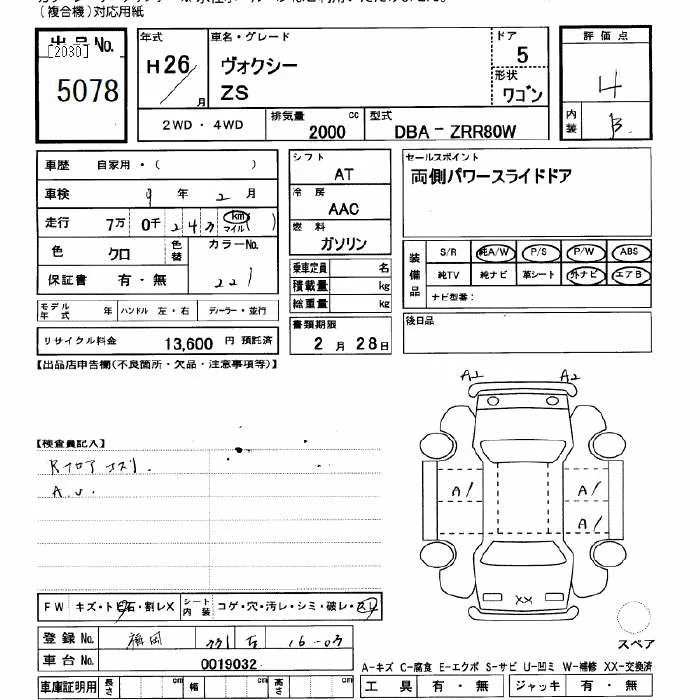 (複合機)対応用紙
出品No.
[2030]
5078
年式
H26
月
車名・グレード
ヴォクシー
ZS
ドア
5
形状
ワゴン
評価点
4
内装
B
2WD・4WD
排気量
2000
cc
型式
DBA-ZRR80W
車歴 自家用・( )
車検 9 年 2 月
走行 7万 0千 2 4 km マイル ( )
色 クロ 色替 カラーNo.
保証書 有・無 221
モデル年式 年 ハンドル 左・右 ディーラー・並行
リサイクル料金 13,600 円 預託済
シフト
AT
冷房
AAC
燃料
ガソリン
乗車定員 名
積載量 kg
総重量 kg
書類期限
2 月 28 日
セールスポイント
両側パワースライドドア
装備品
S/R 純A/W P/S P/W ABS
純TV 純ナビ 革シート 外ナビ エアB
ナビ型番:
後日品
【出品店申告欄(不良箇所・欠品・注意事項等)】
【検査員記入】
A.U.
A2 A2
A1 A1
A1
XX
FW キズ・トビ石・割レX シート内装 コゲ・穴・汚レ・シミ・破レ・スレ
登録No. 福岡 331 16-03
車台No. 0019032
車庫証明用 長さ cm 幅 cm 高さ cm
スペア
A-キズ C-腐食 E-エクボ S-サビ U-凹ミ W-補修 XX-交換済
工具 有・無 ジャッキ 有・無